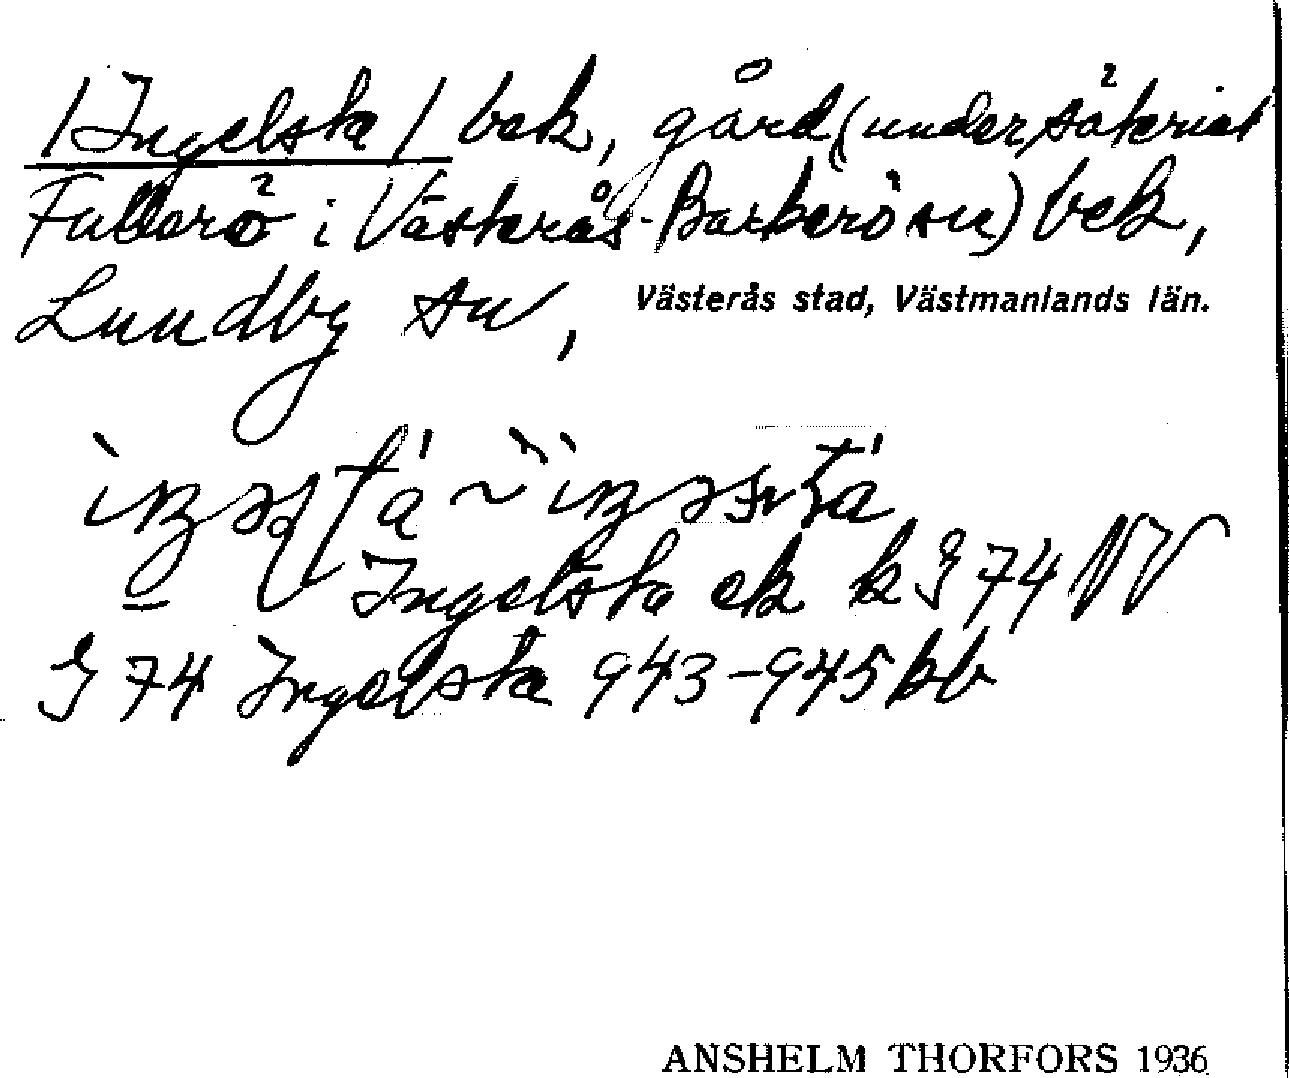 /Ingelsta/ bek, gård (under säteriet
Fullerö i Västerås-Barkarö sn) bek,
Lundby sn,
Västerås stad, Västmanlands län.
Ingelsta ek k G 74 NV
G 74 Ingelsta 943-945 bb
ANSHELM THORFORS 1936